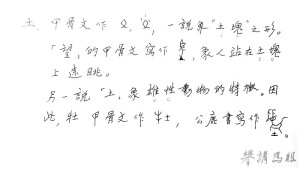 土, 甲骨文作 , , 一說象"土塊"之形。
「望」的甲骨文寫作 , 象人站在土塊
上遠眺。
另一說「土」象雄性動物的特徵。因
此, 牡 甲骨文作 牡, 公鹿書寫作 。
舉講馬祖